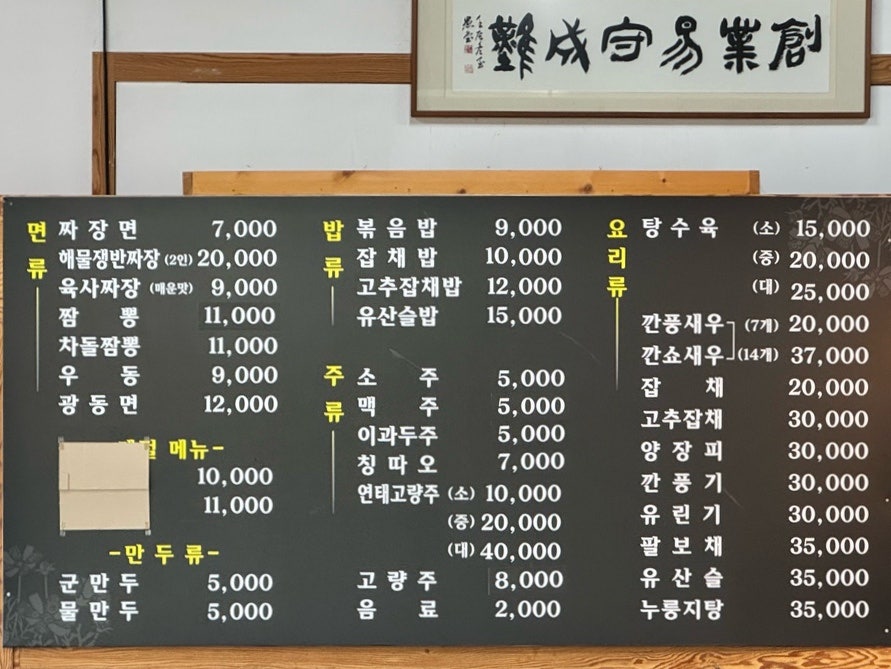 創業易守成難
면류
짜장면 7,000
해물쟁반짜장 (2인) 20,000
육사짜장 (매운맛) 9,000
짬뽕 11,000
차돌짬뽕 11,000
우동 9,000
광동면 12,000
메뉴-
10,000
11,000
-만두류-
군만두 5,000
물만두 5,000
밥류
볶음밥 9,000
잡채밥 10,000
고추잡채밥 12,000
유산슬밥 15,000
주류
소주 5,000
맥주 5,000
이과두주 5,000
칭따오 7,000
연태고량주 (소) 10,000
(중) 20,000
(대) 40,000
고량주 8,000
음료 2,000
요리류
탕수육 (소) 15,000
(중) 20,000
(대) 25,000
깐풍새우 (7개) 20,000
깐쇼새우 (14개) 37,000
잡채 20,000
고추잡채 30,000
양장피 30,000
깐풍기 30,000
유린기 30,000
팔보채 35,000
유산슬 35,000
누룽지탕 35,000